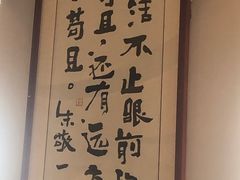 活不止眼前
且，还有远方
苟且。朱敬一